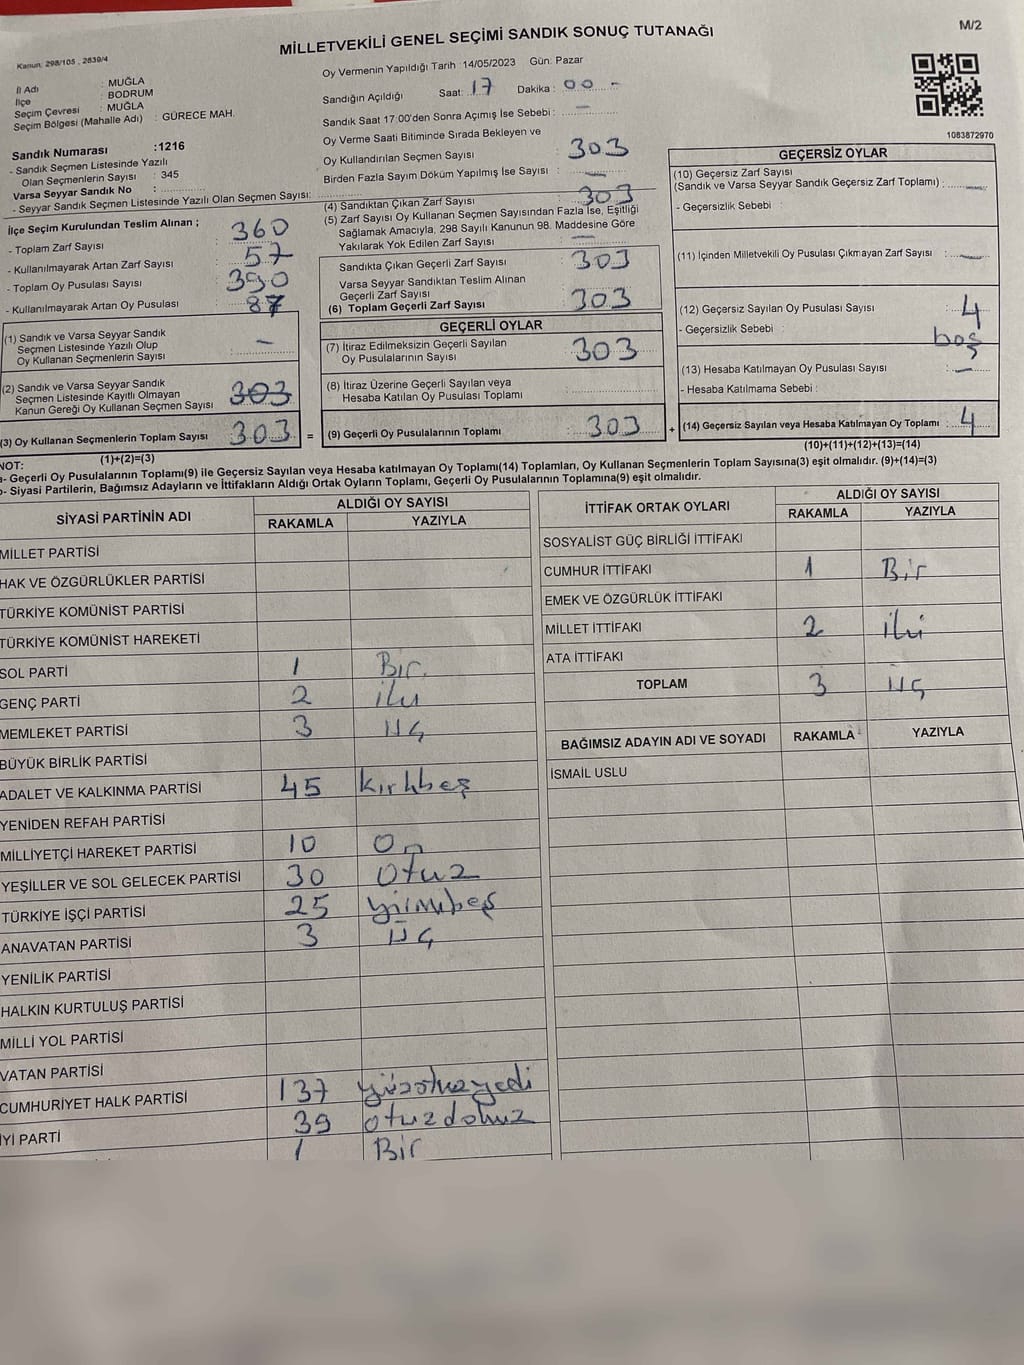 M/2
MİLLETVEKİLİ GENEL SEÇİMİ SANDIK SONUÇ TUTANAĞI
Kanun: 298/105 , 2839/4
İl Adı : MUĞLA
İlçe : BODRUM
Seçim Çevresi : MUĞLA
Seçim Bölgesi (Mahalle Adı) : GÜRECE MAH.
Sandık Numarası :1216
- Sandık Seçmen Listesinde Yazılı
Olan Seçmenlerin Sayısı : 345
Varsa Seyyar Sandık No :
- Seyyar Sandık Seçmen Listesinde Yazılı Olan Seçmen Sayısı:
İlçe Seçim Kurulundan Teslim Alınan ;
- Toplam Zarf Sayısı 360
- Kullanılmayarak Artan Zarf Sayısı 57
- Toplam Oy Pusulası Sayısı 390
- Kullanılmayarak Artan Oy Pusulası 87
(1) Sandık ve Varsa Seyyar Sandık
Seçmen Listesinde Yazılı Olup
Oy Kullanan Seçmenlerin Sayısı : —
(2) Sandık ve Varsa Seyyar Sandık
Seçmen Listesinde Kayıtlı Olmayan
Kanun Gereği Oy Kullanan Seçmen Sayısı 303
(3) Oy Kullanan Seçmenlerin Toplam Sayısı 303 =
(1)+(2)=(3)
Oy Vermenin Yapıldığı Tarih :14/05/2023 Gün: Pazar
Sandığın Açıldığı Saat: 17 Dakika : 00 -
Sandık Saat 17:00'den Sonra Açımış İse Sebebi : —
Oy Verme Saati Bitiminde Sırada Bekleyen ve
Oy Kullandırılan Seçmen Sayısı : 303
Birden Fazla Sayım Döküm Yapılmış İse Sayısı : —
(4) Sandıktan Çıkan Zarf Sayısı : 303
(5) Zarf Sayısı Oy Kullanan Seçmen Sayısından Fazla İse, Eşitliği
Sağlamak Amacıyla, 298 Sayılı Kanunun 98. Maddesine Göre
Yakılarak Yok Edilen Zarf Sayısı : —
Sandıkta Çıkan Geçerli Zarf Sayısı : 303
Varsa Seyyar Sandıktan Teslim Alınan
Geçerli Zarf Sayısı :
(6) Toplam Geçerli Zarf Sayısı : 303
GEÇERLİ OYLAR
(7) İtiraz Edilmeksizin Geçerli Sayılan
Oy Pusulalarının Sayısı : 303
(8) İtiraz Üzerine Geçerli Sayılan veya
Hesaba Katılan Oy Pusulası Toplamı :
(9) Geçerli Oy Pusulalarının Toplamı : 303 +
1083872970
GEÇERSİZ OYLAR
(10) Geçersiz Zarf Sayısı
(Sandık ve Varsa Seyyar Sandık Geçersiz Zarf Toplamı) : —
- Geçersizlik Sebebi :
(11) İçinden Milletvekili Oy Pusulası Çıkmayan Zarf Sayısı : —
(12) Geçersiz Sayılan Oy Pusulası Sayısı : 4
- Geçersizlik Sebebi : boş
(13) Hesaba Katılmayan Oy Pusulası Sayısı : —
- Hesaba Katılmama Sebebi :
(14) Geçersiz Sayılan veya Hesaba Katılmayan Oy Toplamı : 4
(10)+(11)+(12)+(13)=(14)
NOT:
a- Geçerli Oy Pusulalarının Toplamı(9) ile Geçersiz Sayılan veya Hesaba katılmayan Oy Toplamı(14) Toplamları, Oy Kullanan Seçmenlerin Toplam Sayısına(3) eşit olmalıdır. (9)+(14)=(3)
b- Siyasi Partilerin, Bağımsız Adayların ve İttifakların Aldığı Ortak Oyların Toplamı, Geçerli Oy Pusulalarının Toplamına(9) eşit olmalıdır.
SİYASİ PARTİNİN ADI ALDIĞI OY SAYISI
RAKAMLA YAZIYLA
MİLLET PARTİSİ
HAK VE ÖZGÜRLÜKLER PARTİSİ
TÜRKİYE KOMÜNİST PARTİSİ
TÜRKİYE KOMÜNİST HAREKETİ
SOL PARTİ 1 Bir
GENÇ PARTİ 2 iki
MEMLEKET PARTİSİ 3 üç
BÜYÜK BİRLİK PARTİSİ
ADALET VE KALKINMA PARTİSİ 45 kırkbeş
YENİDEN REFAH PARTİSİ
MİLLİYETÇİ HAREKET PARTİSİ 10 On
YEŞİLLER VE SOL GELECEK PARTİSİ 30 Otuz
TÜRKİYE İŞÇİ PARTİSİ 25 yirmibeş
ANAVATAN PARTİSİ 3 üç
YENİLİK PARTİSİ
HALKIN KURTULUŞ PARTİSİ
MİLLİ YOL PARTİSİ
VATAN PARTİSİ
CUMHURİYET HALK PARTİSİ 137 yüzotuzyedi
İYİ PARTİ 39 otuzdokuz
1 Bir
İTTİFAK ORTAK OYLARI ALDIĞI OY SAYISI
RAKAMLA YAZIYLA
SOSYALİST GÜÇ BİRLİĞİ İTTİFAKI
CUMHUR İTTİFAKI 1 Bir
EMEK VE ÖZGÜRLÜK İTTİFAKI
MİLLET İTTİFAKI 2 iki
ATA İTTİFAKI
TOPLAM 3 üç
BAĞIMSIZ ADAYIN ADI VE SOYADI RAKAMLA YAZIYLA
İSMAİL USLU